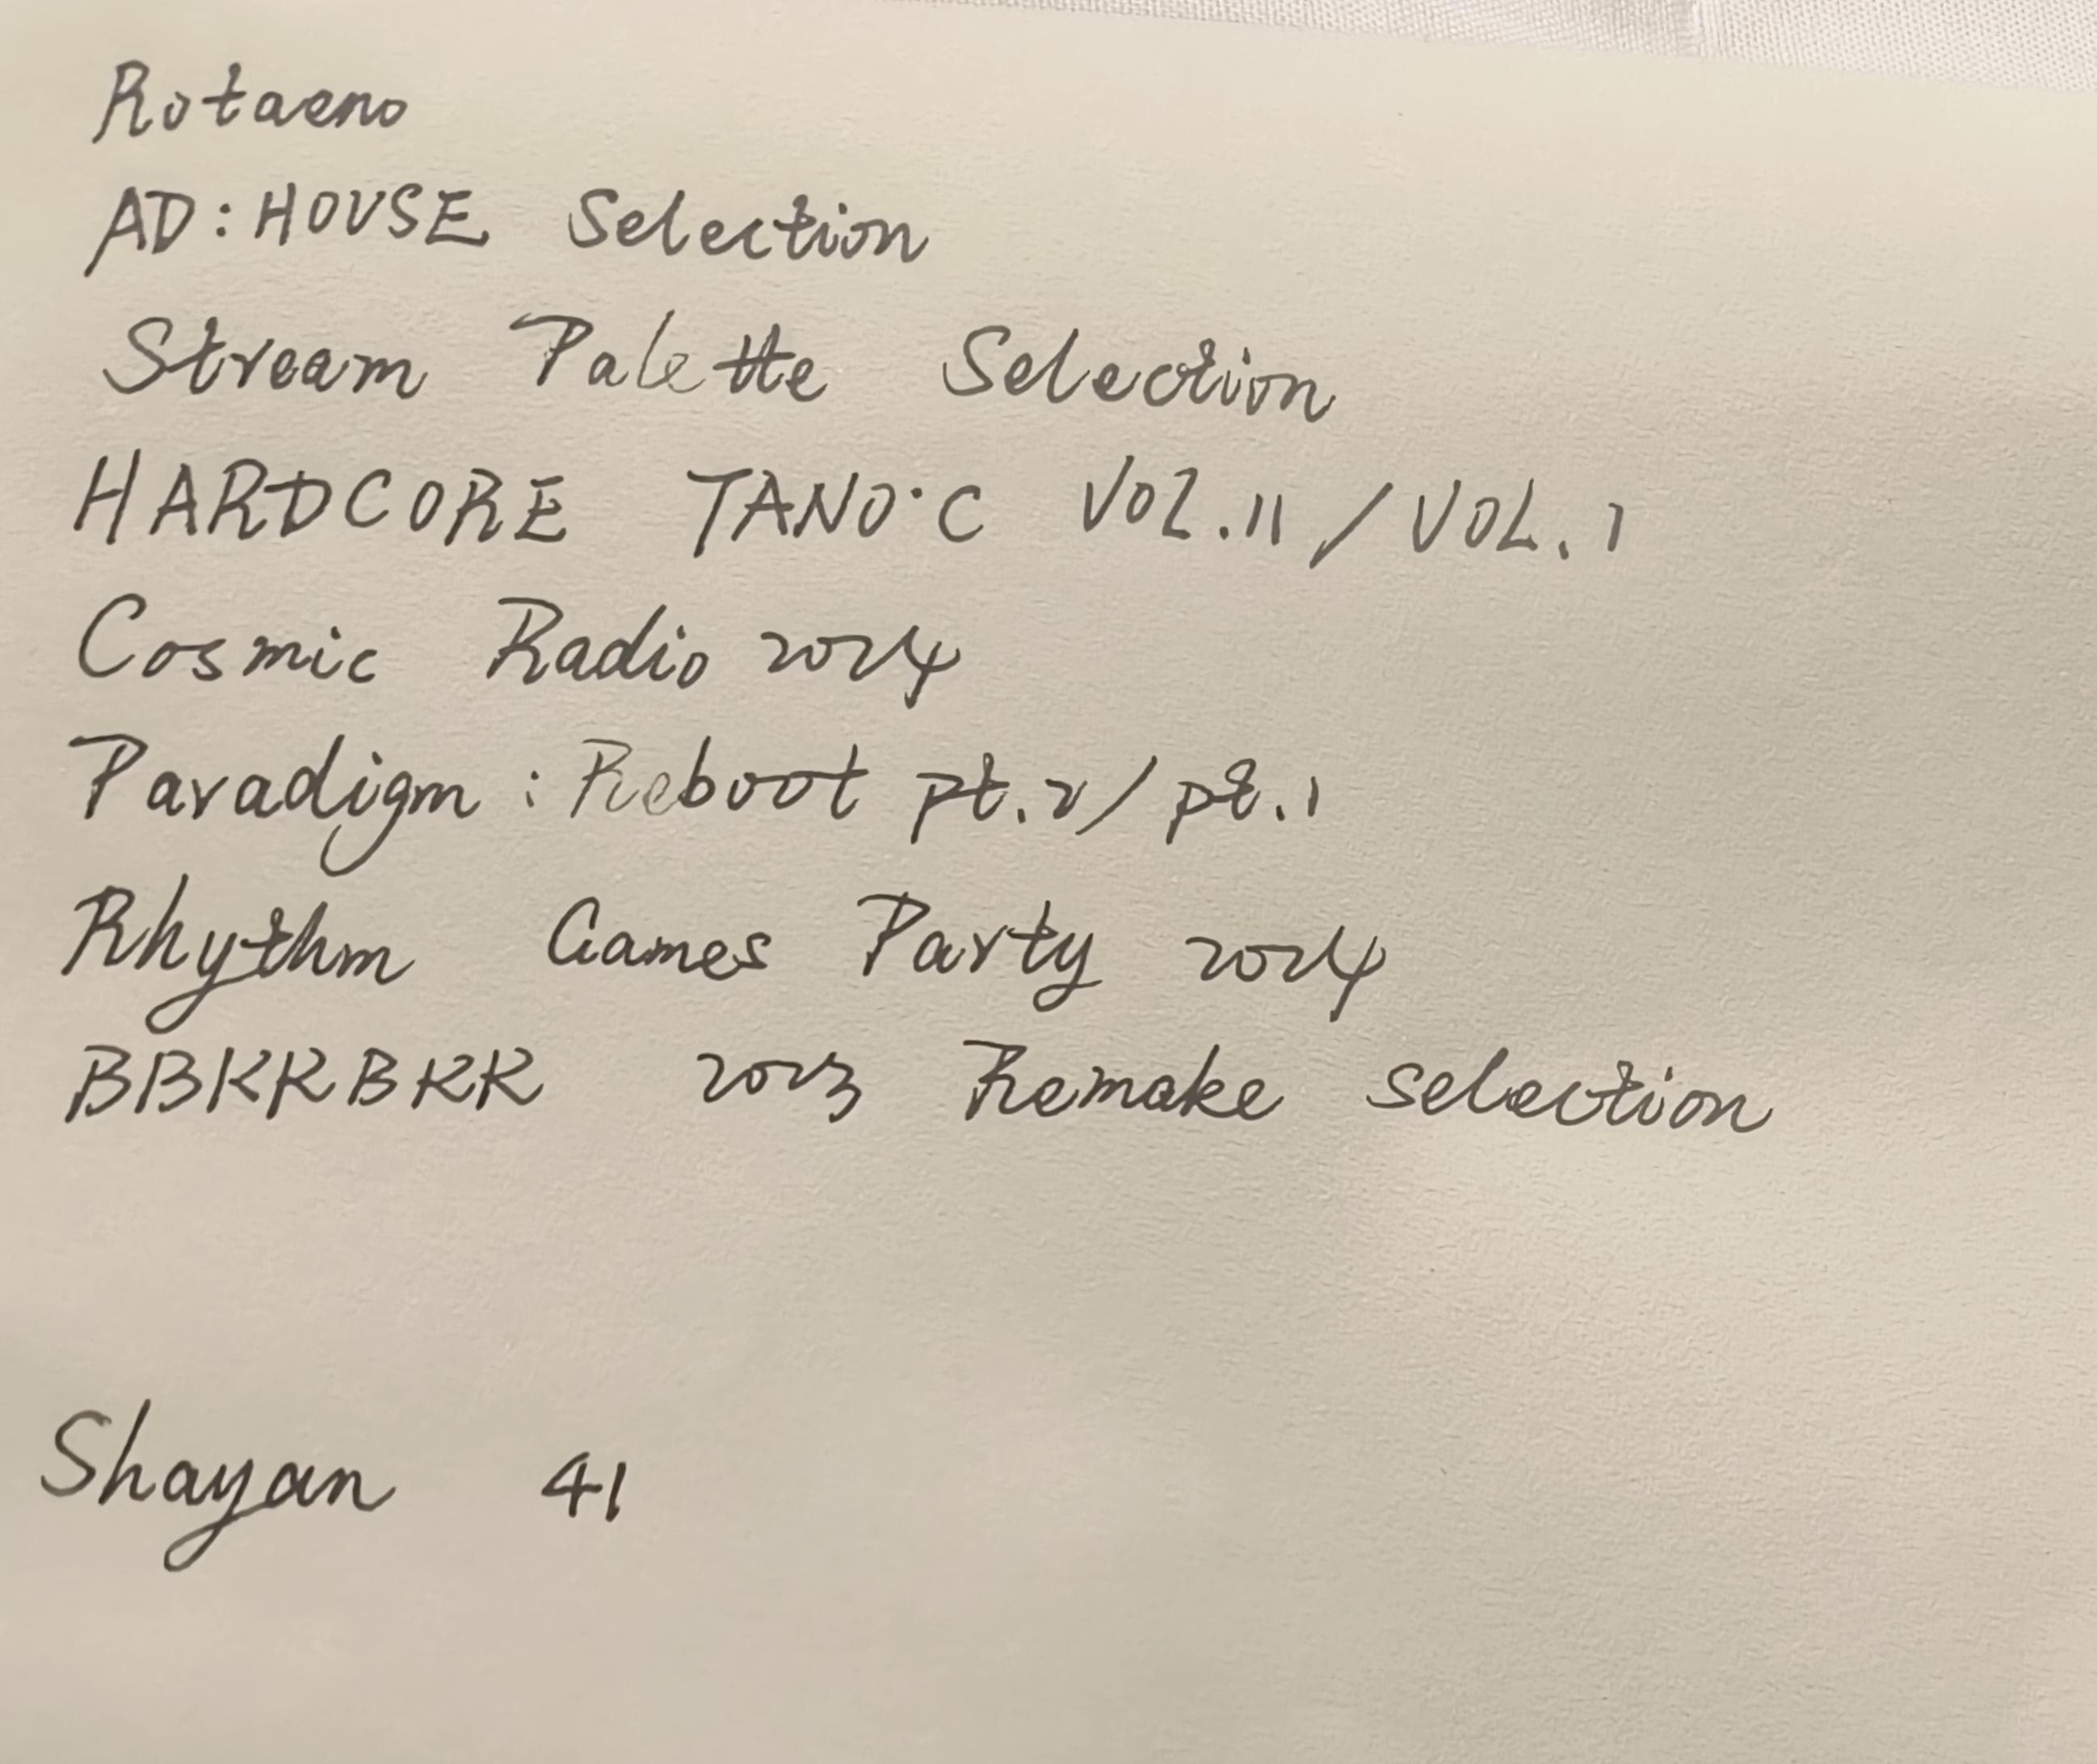 Rotaeno
AD:HOUSE Selection
Stream Palette Selection
HARDCORE TANO*C VOL.II / VOL.I
Cosmic Radio 2024
Paradigm: Reboot pt.2 / pt.1
Rhythm Games Party 2024
BBKKBKK 2023 Remake selection
Shayan 41